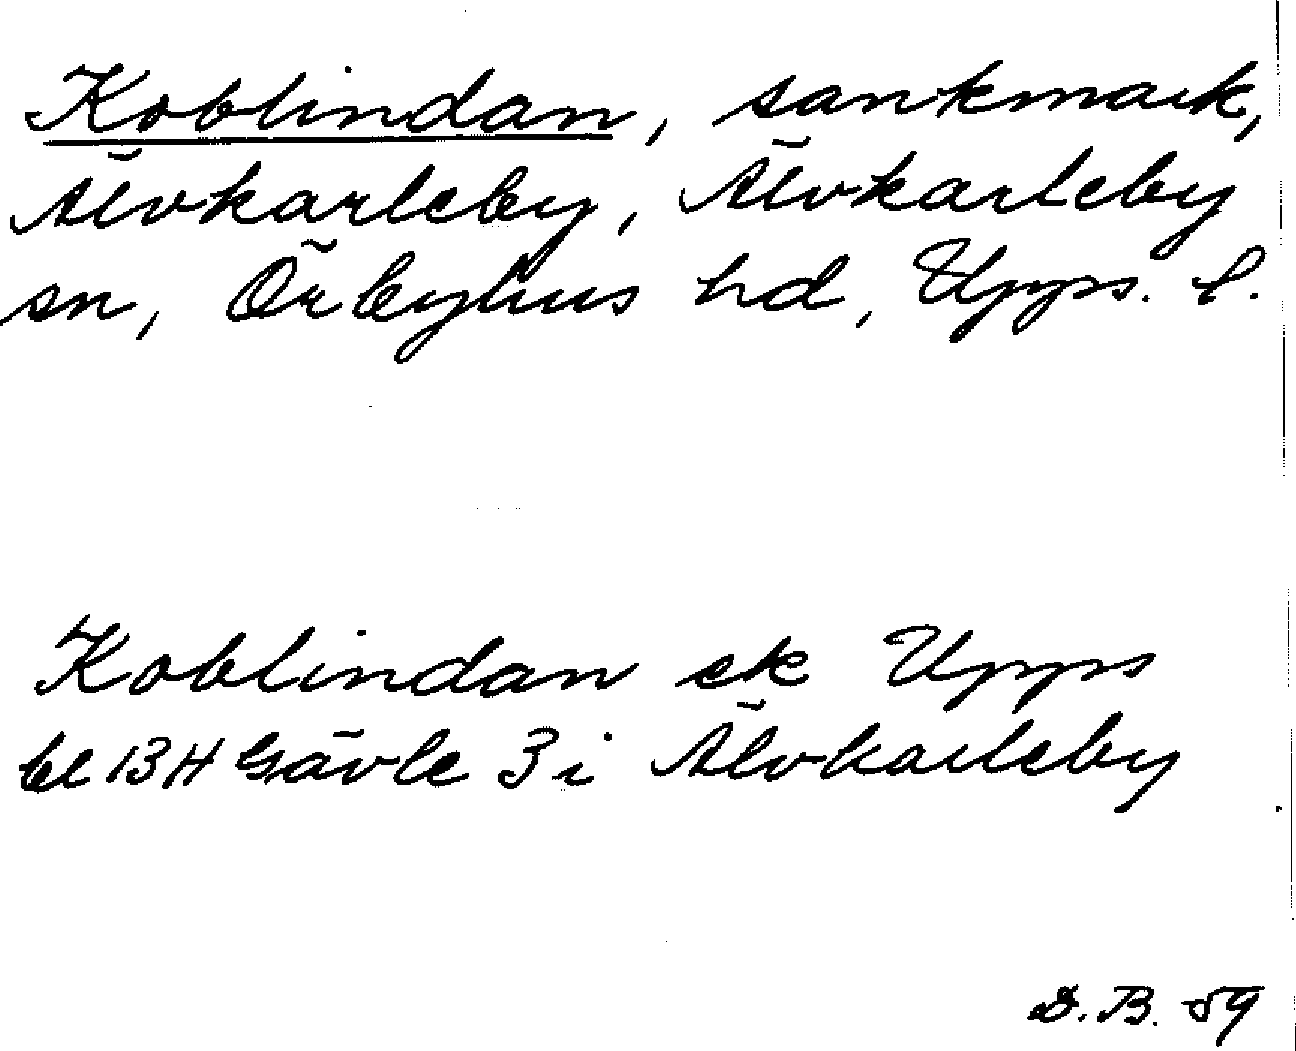 Koblindan, sankmark,
Älvkarleby, Älvkarleby
sn, Örbyhus hd, Upps. l.
Koblindan ek Upps
bl 13H Gävle 3 i Älvkarleby
D.B. 59